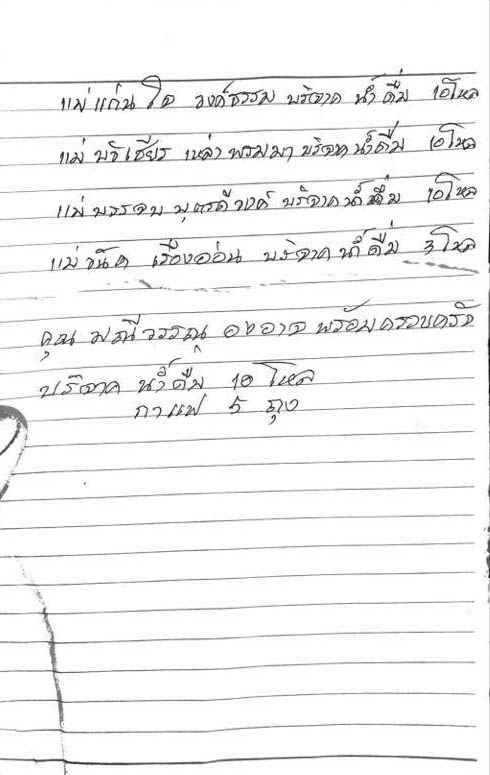 แม่แก่นใจ วงค์ธรรม บริจาค น้ำดื่ม 10โหล
แม่ บริเชียร เหล่าพรมมา บริจาค น้ำดื่ม 10โหล
แม่ บรรจบ บุตรดีวงค์ บริจาค น้ำดื่ม 10โหล
แม่ เรืองอ่อน บริจาค น้ำดื่ม 3โหล
คุณ มณีวรรณ องอาจ พร้อมครอบครัว
บริจาค น้ำดื่ม 10 โหล
กาแฟ 5 ถุง